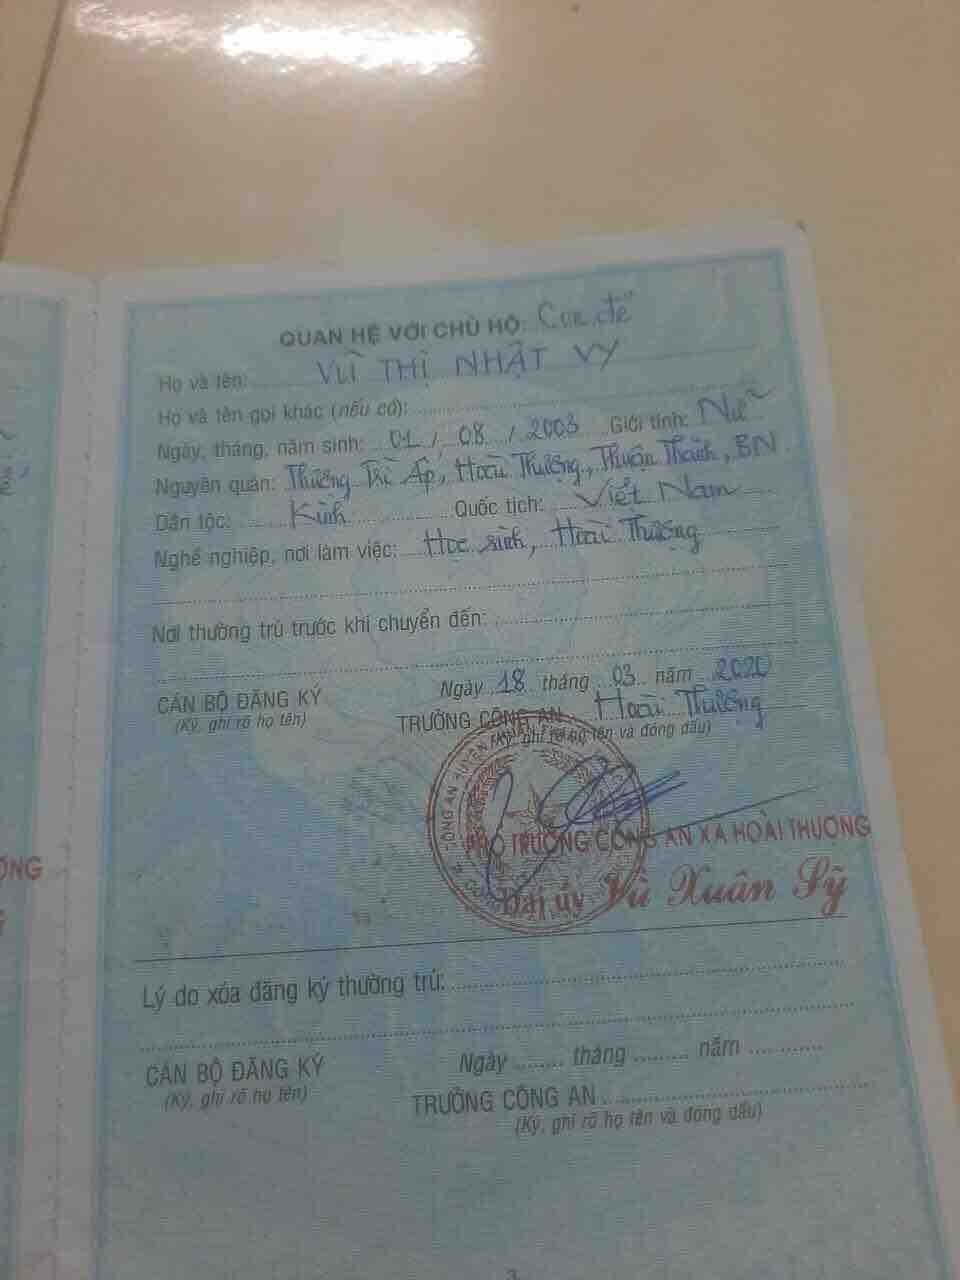 QUAN HỆ VỚI CHỦ HỘ: Con đẻ
Họ và tên: VŨ THỊ NHẬT VY
Họ và tên gọi khác (nếu có):
Ngày, tháng, năm sinh: 01 / 08 / 2003 Giới tính: Nữ
Nguyên quán: Thượng Trì Ấp, Hoài Thượng, Thuận Thành, BN.
Dân tộc: Kinh Quốc tịch: Việt Nam
Nghề nghiệp, nơi làm việc: Học sinh, Hoài Thượng
Nơi thường trú trước khi chuyển đến:
Ngày 18 tháng 03 năm 2020
CÁN BỘ ĐĂNG KÝ
(Ký, ghi rõ họ tên)
TRƯỞNG CÔNG AN Hoài Thượng
(Ký, ghi rõ họ tên và đóng dấu)
CÔNG AN HUYỆN
PHÓ TRƯỞNG CÔNG AN XÃ HOÀI THƯỢNG
Đại úy Vũ Xuân Sỹ
Lý do xóa đăng ký thường trú:
Ngày ........ tháng ......... năm ............
CÁN BỘ ĐĂNG KÝ
(Ký, ghi rõ họ tên)
TRƯỞNG CÔNG AN
(Ký, ghi rõ họ tên và đóng dấu)
3